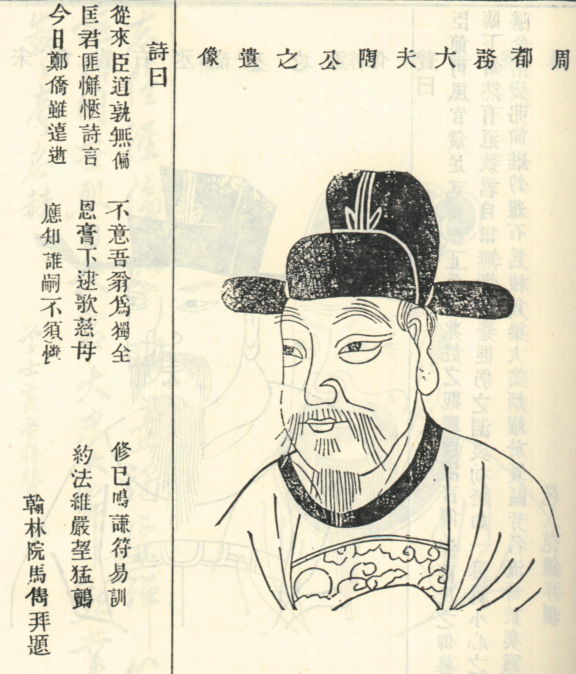 周都務大夫陶公之遺像
詩曰
從來臣道孰無偏 不意吾翁爲獨全 修已鳴謙符易訓
匡君匪懈愜詩言 恩膏下逮歌慈母 約法維嚴望猛鸇
今日鄭僑雖遠逝 應知誰嗣不須憐
翰林院馬儁拜題